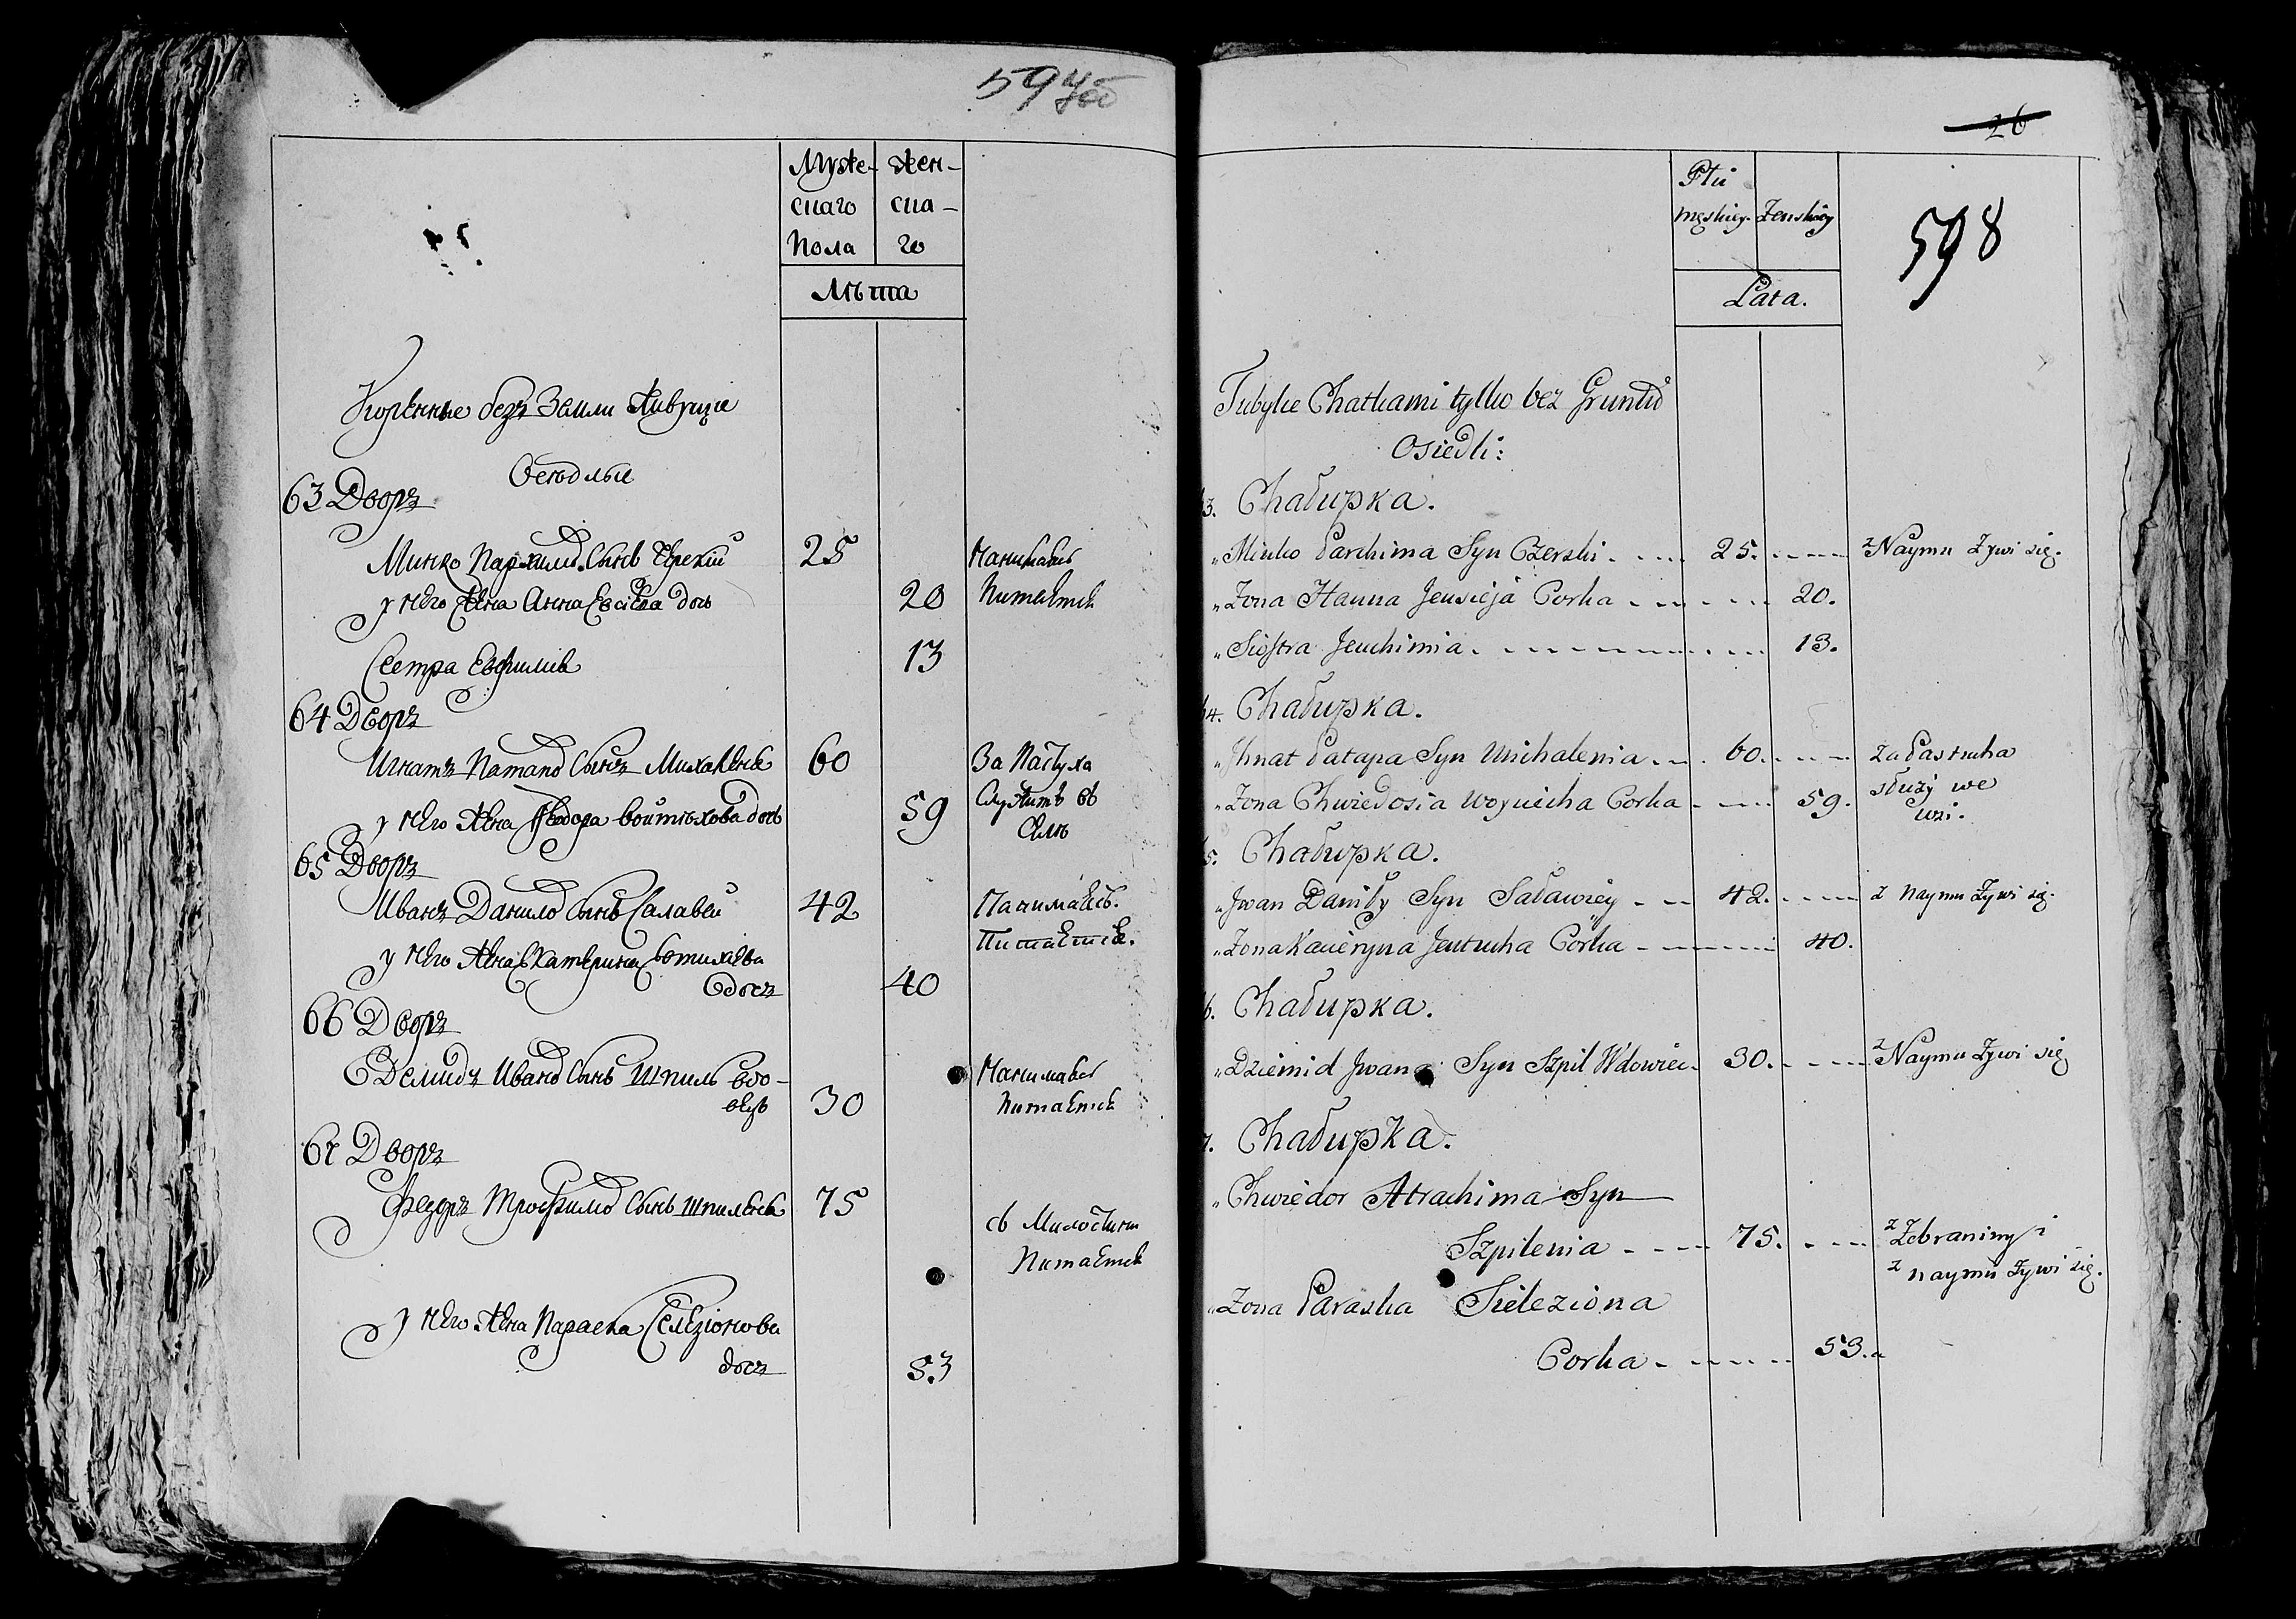 594 об
Муже- Жен-
скаго ска-
Пола го
Лѣта
Коренные безъ Земли Живущіе
Оселые
63 Дворъ
Минко Пархимо. Сынъ Черскій 25 Нанимаясь
у него Жена Анна Евсіева дочь 20 Питается
Сестра Евфимія 13
64 Дворъ
Игнатъ Патапо Сынъ Михаленя 60 За Пастуха
у него Жена Феодора Войтѣхова дочь 59 Служитъ въ
Селѣ
65 Дворъ
Иванъ Данило Сынъ Салавей 42 Нанимаясь.
у него Жена Екатерина Евтихіева Питается.
дочь 40
66 Дворъ
Демидъ Ивано Сынъ Шпиль вдо- Нанимаясь
вецъ 30 Питается
67 Дворъ
Федоръ Трофимо Сынъ Шпиленя 75 съ Милостыни
Питается
у него Жена Параска Селезіонова
дочь 53
26
Płci
męskiey żenskiey
598
Lata.
Tubylce Chatkami tylko bez Gruntu
Osiedli:
3. Chałupka.
„Minko Parchima Syn Czerski 25. z Naymu Żywi się.
„Żona Hanna Jeusieja Corka 20.
„Siostra Jeuchimia 13.
4. Chałupka.
„Ihnat Patapa Syn Michalenia 60. za Pastucha
„Żona Chwiedosia Woyciecha Corka 59. służy we
wsi.
5. Chałupka.
„Jwan Daniły Syn Saławiey 42. z Naymu Żywi się.
„Żona Kacieryna Jeutucha Corka 40.
6. Chałupka.
„Dziemid Jwana Syn Szpil Wdowiec 30. z Naymu Żywi się
7. Chałupka.
„Chwiedor Atrachima Syn
Szpilenia 75. z Żebraniny i
z naymu Żywi się.
„Żona Paraska Sieleziona
Corka 53.